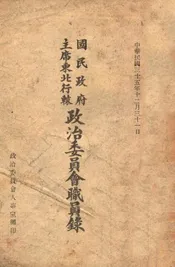 中華民國三十五年十二月三十一日
國民政府
主席東北行轅
政治委員會職員錄
政治委員會人事室編印